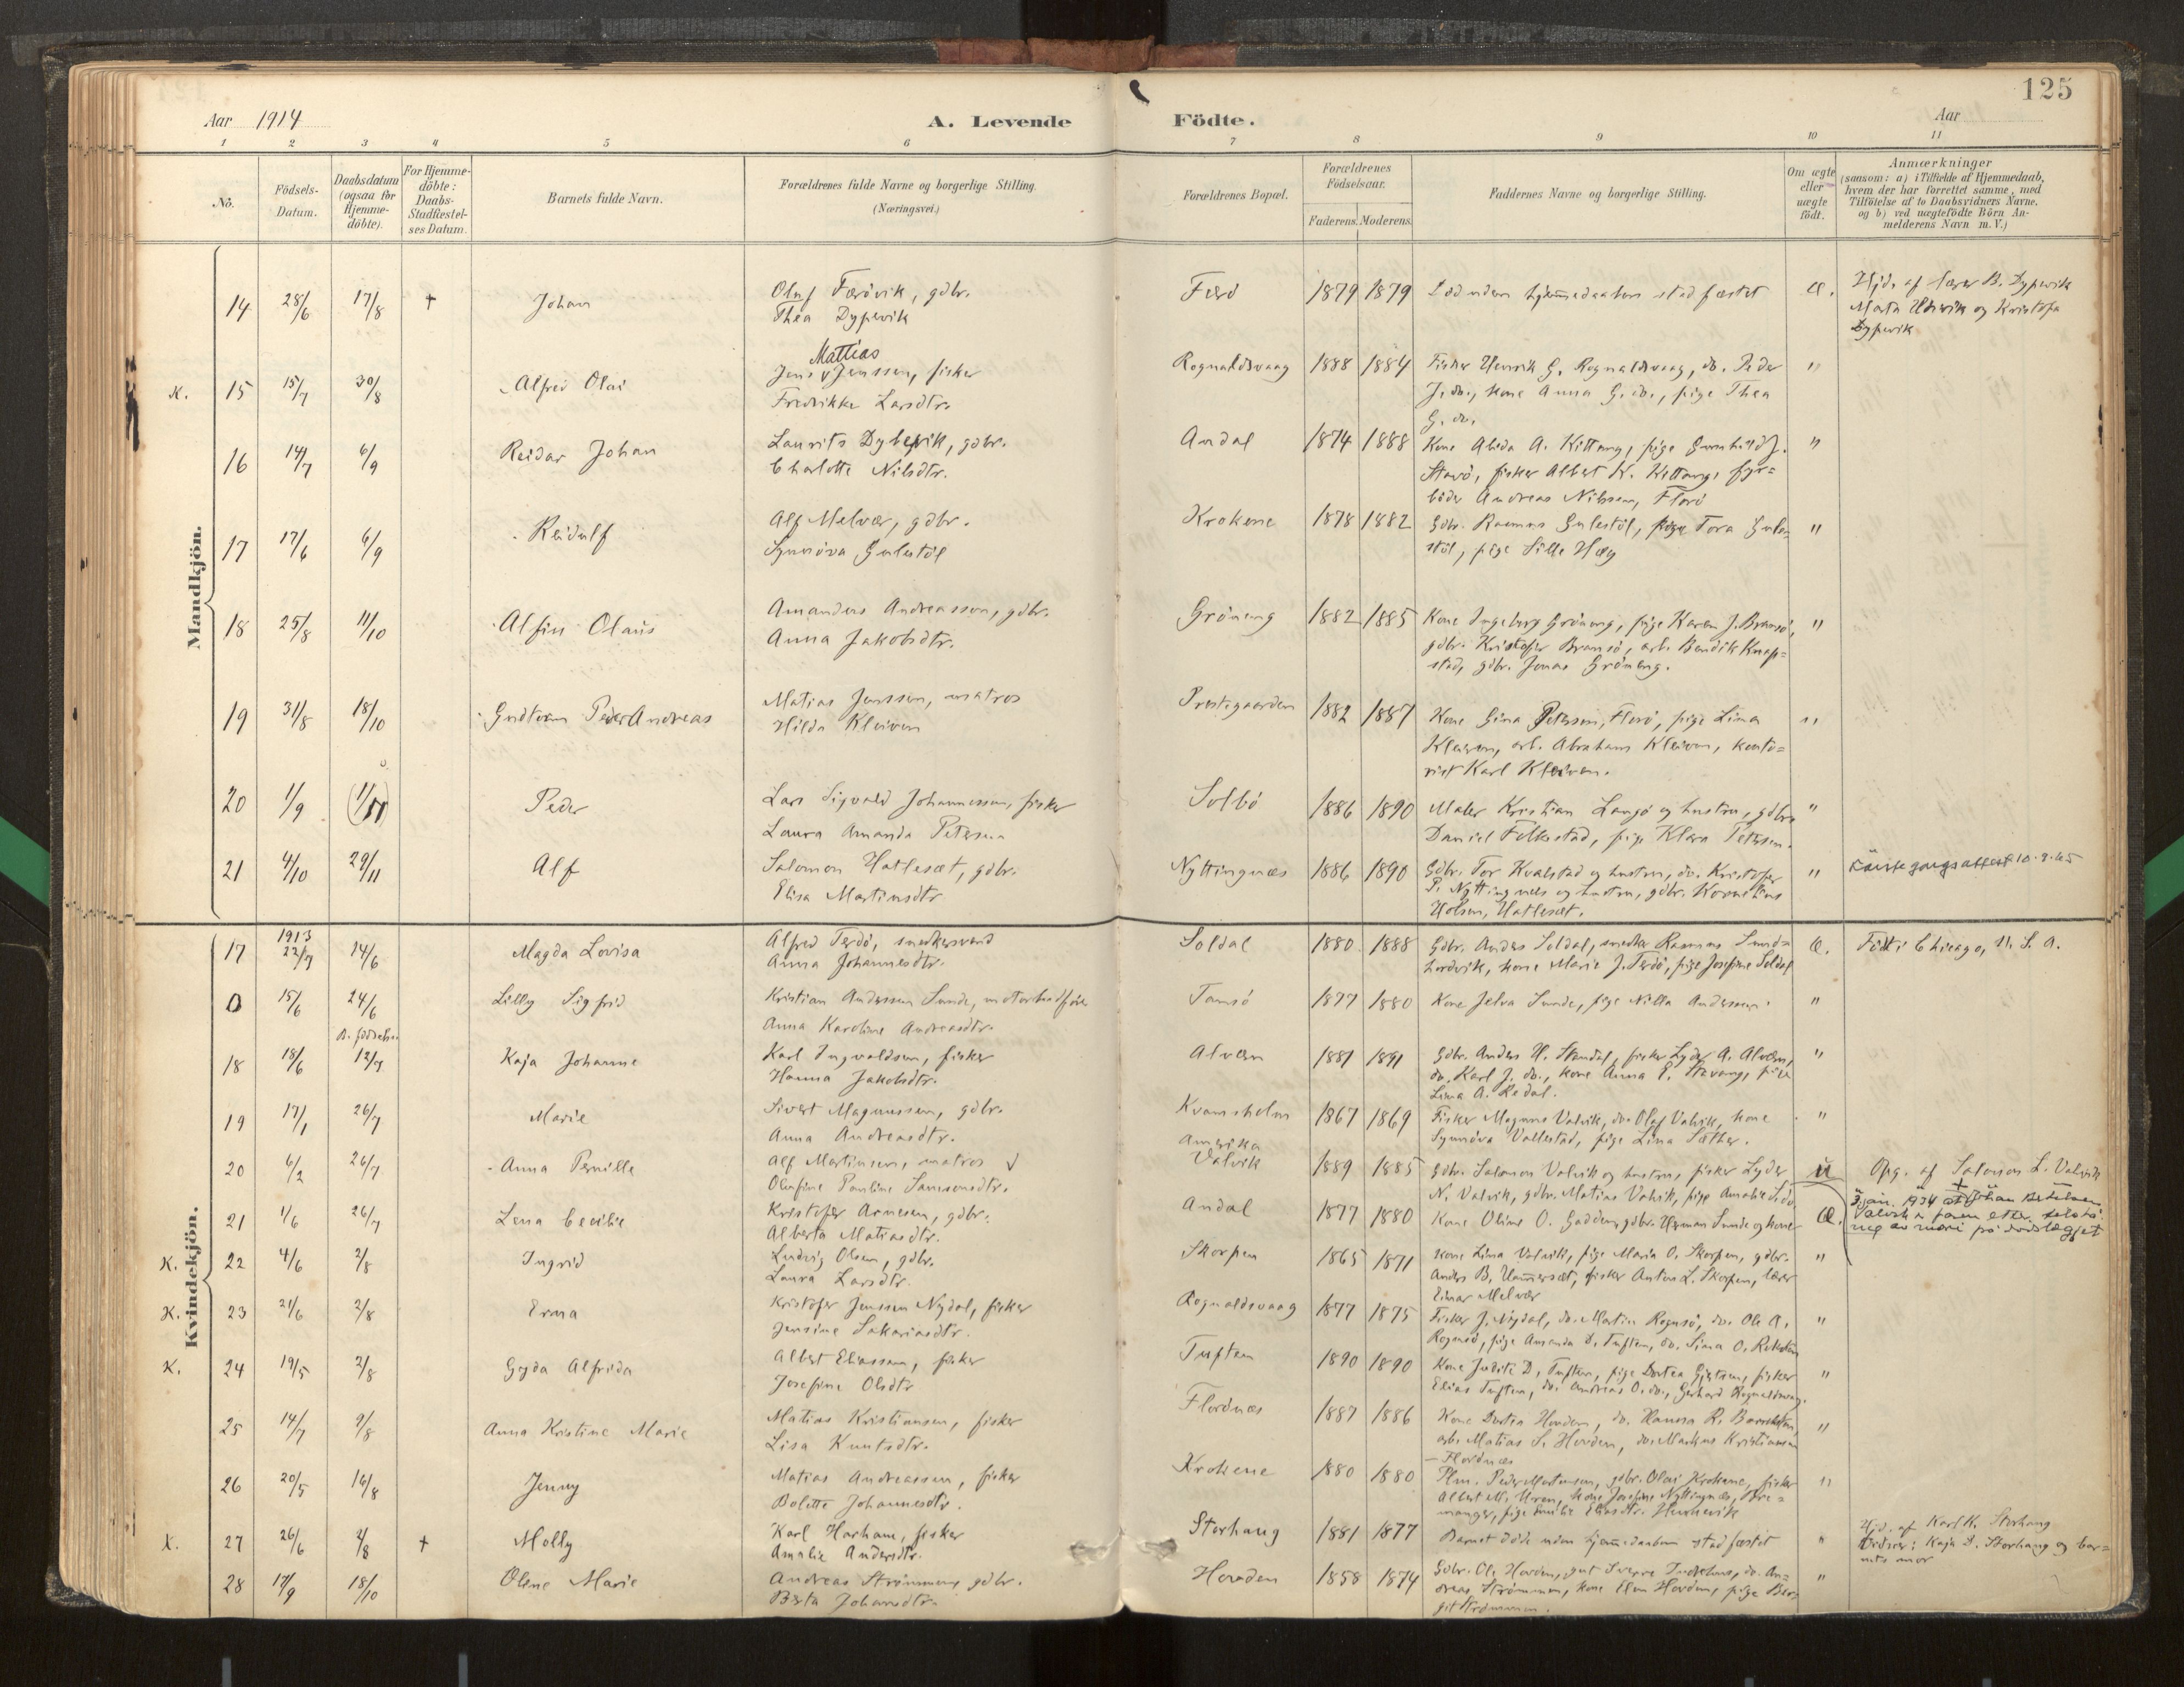 125
Aar 1914
A. Levende Födte.
Aar
1 2 3 4 5 6 7 8 9 10 11
No.
Födsels-Datum.
Daabsdatum (ogsaa for Hjemme-döbte).
For Hjemme-döbte: Daabs-Stadfæstel-ses Datum.
Barnets fulde Navn.
Forældrenes fulde Navne og borgerlige Stilling. (Næringsvei.)
Forældrenes Bopæl.
Forældrenes Födselsaar.
Faderens. Moderens.
Faddernes Navne og borgerlige Stilling.
Om ægte eller uægte födt.
Anmærkninger
(saasom: a) i Tilfælde af Hjemmedaab,
hvem der har forrettet samme, med
Tilföielse af to Daabsvidners Navne,
og b) ved uægtefödte Börn An-
melderens Navn m. V.)
Mandkjön.
14 28/6 17/8 + Johan Oluf Færövik, gdbr. Færö 1879 1879 Död uden hjemmedaaben stadfæstet Æ. Hjd. af lærer B. Dypevik
Thea Dypevik Marta og Kristofa
Dypevik
Mattias
K. 15 15/7 30/8 Alfred Olai Jens Jenssen, fisker Rognaldsvaag 1888 1884 Fisker Henrik G. Rognaldsvaag, do. Peder "
Fredrikke Larsdtr. J. do., kone Anna G. do., pige Thea
G. do.
16 14/7 6/9 Reidar Johan Laurits Dypevik, gdbr. Andal 1874 1888 Kone Alida A. Kittang, pige Gunhild J. "
Charlotte Nilsdtr. fisker Albert K. Kittang, fyr=
böder Andreas Nilssen, Florö
17 17/6 6/9 Reidulf Alf Melvær, gdbr. Krokene 1878 1882 Gdbr. Rasmus Gulestöl, pige Tora Gule= "
Synnöva Gulestöl stöl, pige Sille Hög
18 25/8 11/10 Alfin Olaus Amandus Andreassen, gdbr. Gröneng 1882 1885 Kone Ingeborg Gröneng, pige Karen J. Bransö, "
Anna Jakobsdtr. gdbr. Kristofer Bransö, arb. Bendik Knap=
stad, gdbr. Jonas Gröneng.
19 31/8 18/10 Gudtorm Peder Andreas Matias Jenssen, matros Prestegaarden 1882 1887 Kone Gina Petersen, Florö, pige Lina "
Hilda Kleiven Kleiven, arb. Abraham Kleiven, konto=
rist Karl Kleiven.
20 1/9 (1/11) Peder Lars Sigvald Johannessen, fisker Solbö 1886 1890 Maler Kristian Langö og hustru, gdbr. "
Laura Amanda Petersen Daniel Folkestad, pige Klara Petersen.
21 4/10 29/11 Alf Salomon Hatleset, gdbr. Nyttingnæs 1886 1890 Gdbr. Tor Kvalstad og hustru, do. Kristofer "
Elisa Martinsdtr. P. Nyttingnæs og hustru, gdbr. Kornelius
Holsen, Hatleset.
Kvindekjön.
1913
17 22/7 14/6 Magda Lovisa Alfred Terdö, snedkersvend Soldal 1880 1888 Gdbr. Anders Soldal, snedker Rasmus Sund= Æ. Födt i Chicago, U. S. A.
Anna Johannesdtr. hordvik, kone Marie J. Terdö, pige Josefine Soldal
0 15/6 24/6 Lilly Sigfrid Kristian Anderssen Sunde, Tansö 1877 1880 Kone Jelva Sunde, pige Nilla Anderssen. "
Anna Karoline Andreasdtr.
18 18/6 12/7 Kaja Johanne Karl Ingvaldsen, fisker Alvæn 1881 1891 Gdbr. Anders H. Standal, fisker Lyder A. Alvæn, "
Hanna Jakobsdtr. do. Karl J. do., kone Anna E. Stavang, pige
Lina A. Redal.
19 17/1 26/7 Marie Sivert Magnussen, gdbr. Kvamsholm 1867 1869 Fisker Magnus Valvik, do. Olaf Valvik, kone "
Anna Andreasdtr. Synnöva Vallestad, pige Lina Sæther.
Amerika
20 6/2 26/7 Anna Pernille Alf Martinsen, matros Valvik 1889 1885 Gdbr. Salomon Valvik og hustru, fisker Lyder U Opg. af Salomon L. Valvik
Olufine Pauline Samsonsdtr. N. Valvik, gdbr. Matias Valvik, pige Amalie
21 1/6 26/7 Lena Cecilie Kristofer Arnesen, gdbr. Andal 1877 1880 Kone Oline O. Gaddem, gdbr. Herman Sunde og kone Æ.
Alberta Matiasdtr.
K. 22 4/6 2/8 Ingrid Ludvig Olsen, gdbr. Skorpen 1865 1871 Kone Lina Valvik, pige Maria O. Skorpen, gdbr. "
Laura Larsdtr. Anders B. Hammersæt, fisker Anton L. Skorpen, lærer
Einar Melvær
K. 23 21/6 2/8 Erna Kristofer Jenssen Nydal, fisker Rognaldsvaag 1877 1875 Fisker J. Nydal, do. Martin Rognsö, do. Ole A. "
Jensine Sakariasdtr. Rognsö, pige Amanda D. Tuften, do. Lina O.
K. 24 19/5 2/8 Gyda Alfrida Albert Eliassen, fisker Tuften 1890 1890 Kone Judite D. Tuften, pige Dortea Gjertsen, fisker "
Josefine Olsdtr Elias Tuften, do. Andreas O. do., Gerhard Rognaldsvaag.
25 14/7 9/8 Anna Kristine Marie Matias Kristiansen, fisker Flordnæs 1887 1886 Kone Dortea Hovden, do. Hanna R. "
Lisa Knutsdtr. arb. Matias S. Hovden, do. Markus Kristiansen
- Flordnæs
26 20/5 16/8 Jenny Matias Andreassen, fisker Krokene 1880 1880 Plm. Peder Mortensen, gdbr. Olai Krokene, fisker "
Bolette Johannesdtr. Albert M. Uren, kone Josefine Nyttingnæs, Bre=
manger, pige Emilie Eliasdtr.
K. 27 26/6 2/8 + Molly Karl Harham, fisker Storhaug 1881 1877 Barnet döde uden hjemmedaaben stadfæstet " Hjd. af Karl K. Storhaug
Amalie Andersdtr. Vidner: Kaja D. Storhaug og bar=
nets mor
28 17/9 18/10 Olene Marie Andreas Strömmen, gdbr. Hovden 1858 1874 Gdbr. Ol. Hovden, gut Sverre Indrehus, do. An= "
Berta Johansdtr. dreas Strömmen, kone Elen Hovden, pige Ber=
git Strömmen.